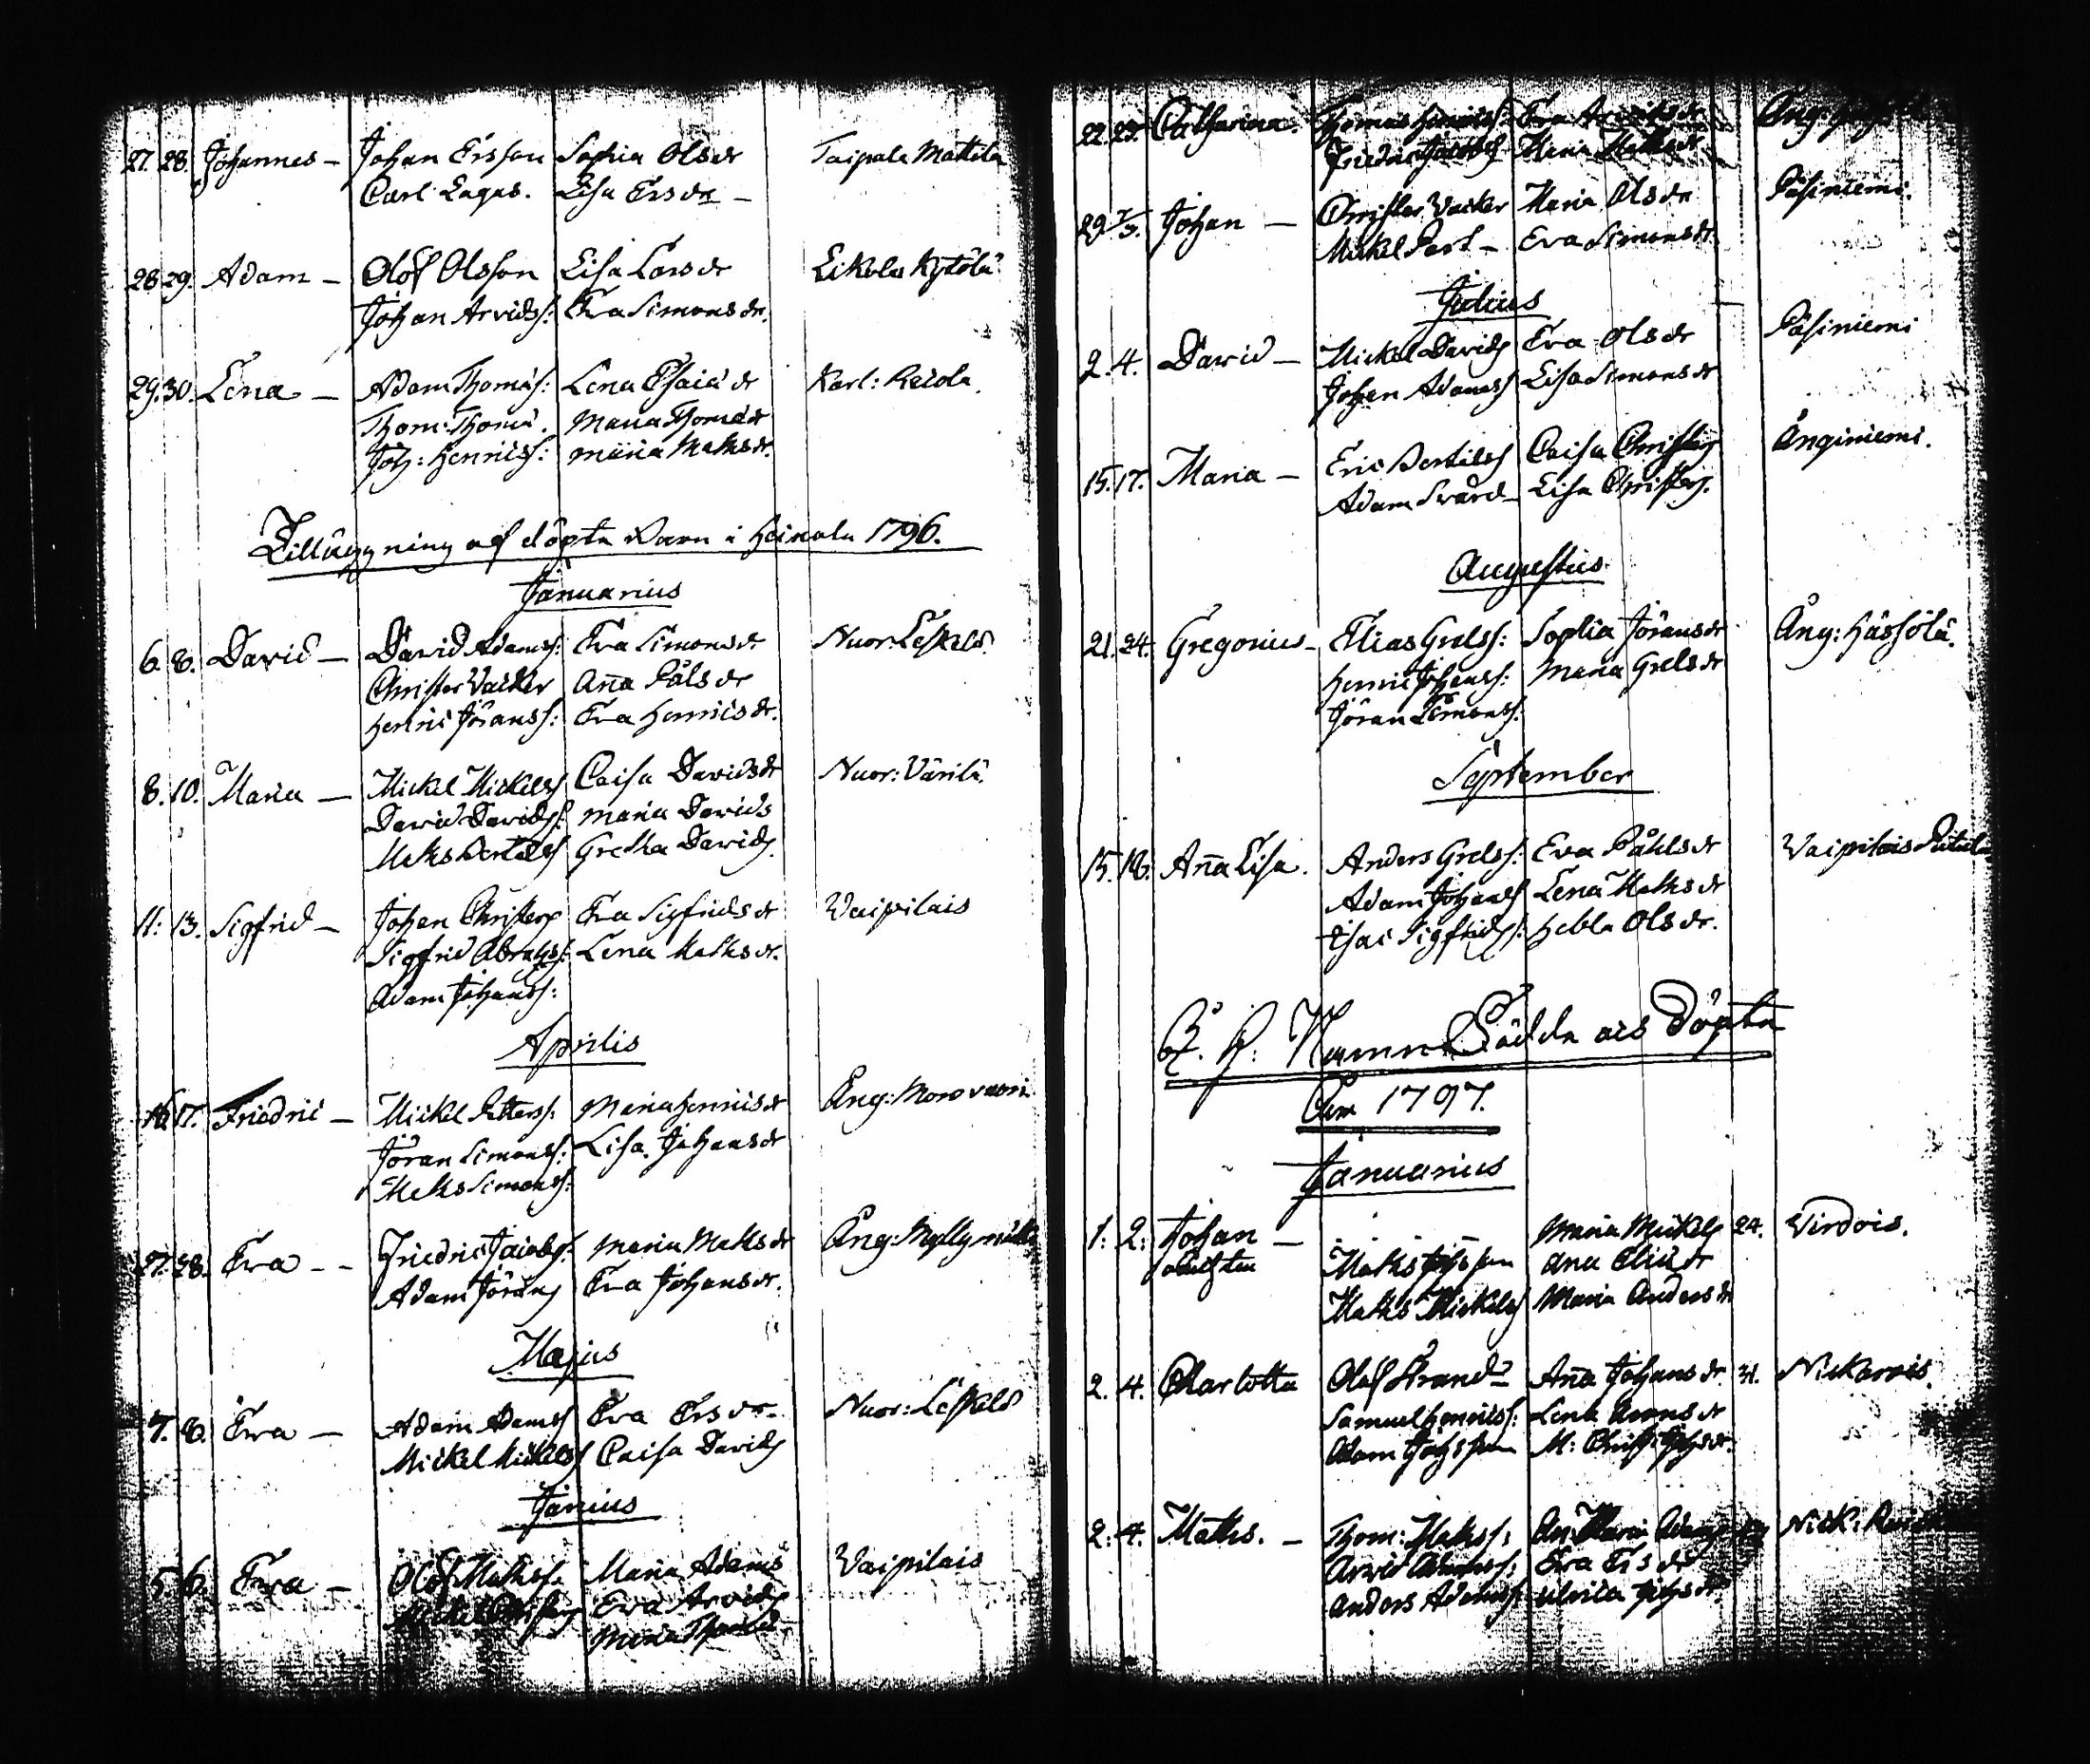 27. 28. Johannes – Johan Ersson Sophia Olsdr Taipale Mattila
Carl Lagus. Lisa Ersdr –
28 29. Adam – Olof Olsson Lisa Larsdr Eikola Kytölä
Johan Arvidss: Eva Simonsdr.
29. 30. Lena – Adam Thomæss: Lena Esaiædr Karl: Reiola.
Thom: Thomæ. Maria Thomædr
Joh: Henricss: maria Mathsdr.
Tilläggning af döpta Barn i Heinola 1796.
Januarius
6. 8. David – David Adamss: Eva Simonsdr Nuor: Leskelä
Christer Vacker Aña Pålsdr
Henric Jöranss: Eva Henricsdr.
8. 10. Maria – Mickel Mickelss Caisa Davidsdr Nuor: Värilä
David Davidss: maria Davids
Maths Bertilss Gretha Davids
11: 13. Sigfrid – Johan Christers Eva Sigfridsdr Vaipilais
Sigfrid Abrahss: Lena Mathsdr.
Adam Johanss:
Aprilis
16. 17. Friedric – Mickel Petterss: Maria Henricsdr Äng: Morovuori
Jöran Simonss: Lisa Johansdr
Maths Simonss:
27. 28. Eva – – Friedric Jacobss: Maria Mathsdr Äng: Myllymäki
Adam Jörans Eva Johansdr.
Majus
7. 8. Eva – Adam Adamss Eva Ersdr Nuor: Leskelä
Mickel Mickelss Caisa Davids
Junius
5. 6. Eva – Olof Mathss: Maria Adams Vaipilais
Mickel Eva Arvids
Maria
22. 23. Catharina. Thomas Henricss: Eva Arvidsdr Äng:
Friedric Jacobss Maria Mathsdr
29. Johan – Christer Vacker Maria Olsdr Päsiniemi.
Mickel Part – Eva Simonsdr.
Julius
2. 4. David – Mickel Davids Eva Olsdr Päsiniemi
Johan Adamss Lisa Simonsdr
15. 17. Maria – Eric Bertilss Caisa Christers Änginiemi.
Adam Svärd – Lisa Christers.
Augustus
21. 24. Gregorius – Elias Grelss: Sophia Jöransdr Äng: Hässölä.
Henric Johanss: Maria Grelsdr
Jöran Simonss:
September
15. 18. Aña Lisa. Anders Grelss: Eva Påhlsdr Vaipilais
Adam Johanss Lena Mathsdr
Esai Sigfridss: Hebla Olsdr.
Namn Födde och Döpta
1797.
Januarius
1: 2: Johan – Maria Mickels 24. Virdois.
oächten Maths Johsson Ana Eliædr
Maths Mickelss Maria Andersdr
2. 4. Charlotta Olof Strand – Aña Johansdr 31. Nickarois.
Samuel Henricss: Lena Aronsdr
Adam Johsson M: Christ: Johsdr
2: 4. Maths. – Thom: Mathss: An: Maria Nick:
Arvid Adamss: Eva Ersdr
Anders Adamss: Ulrica Johsdr